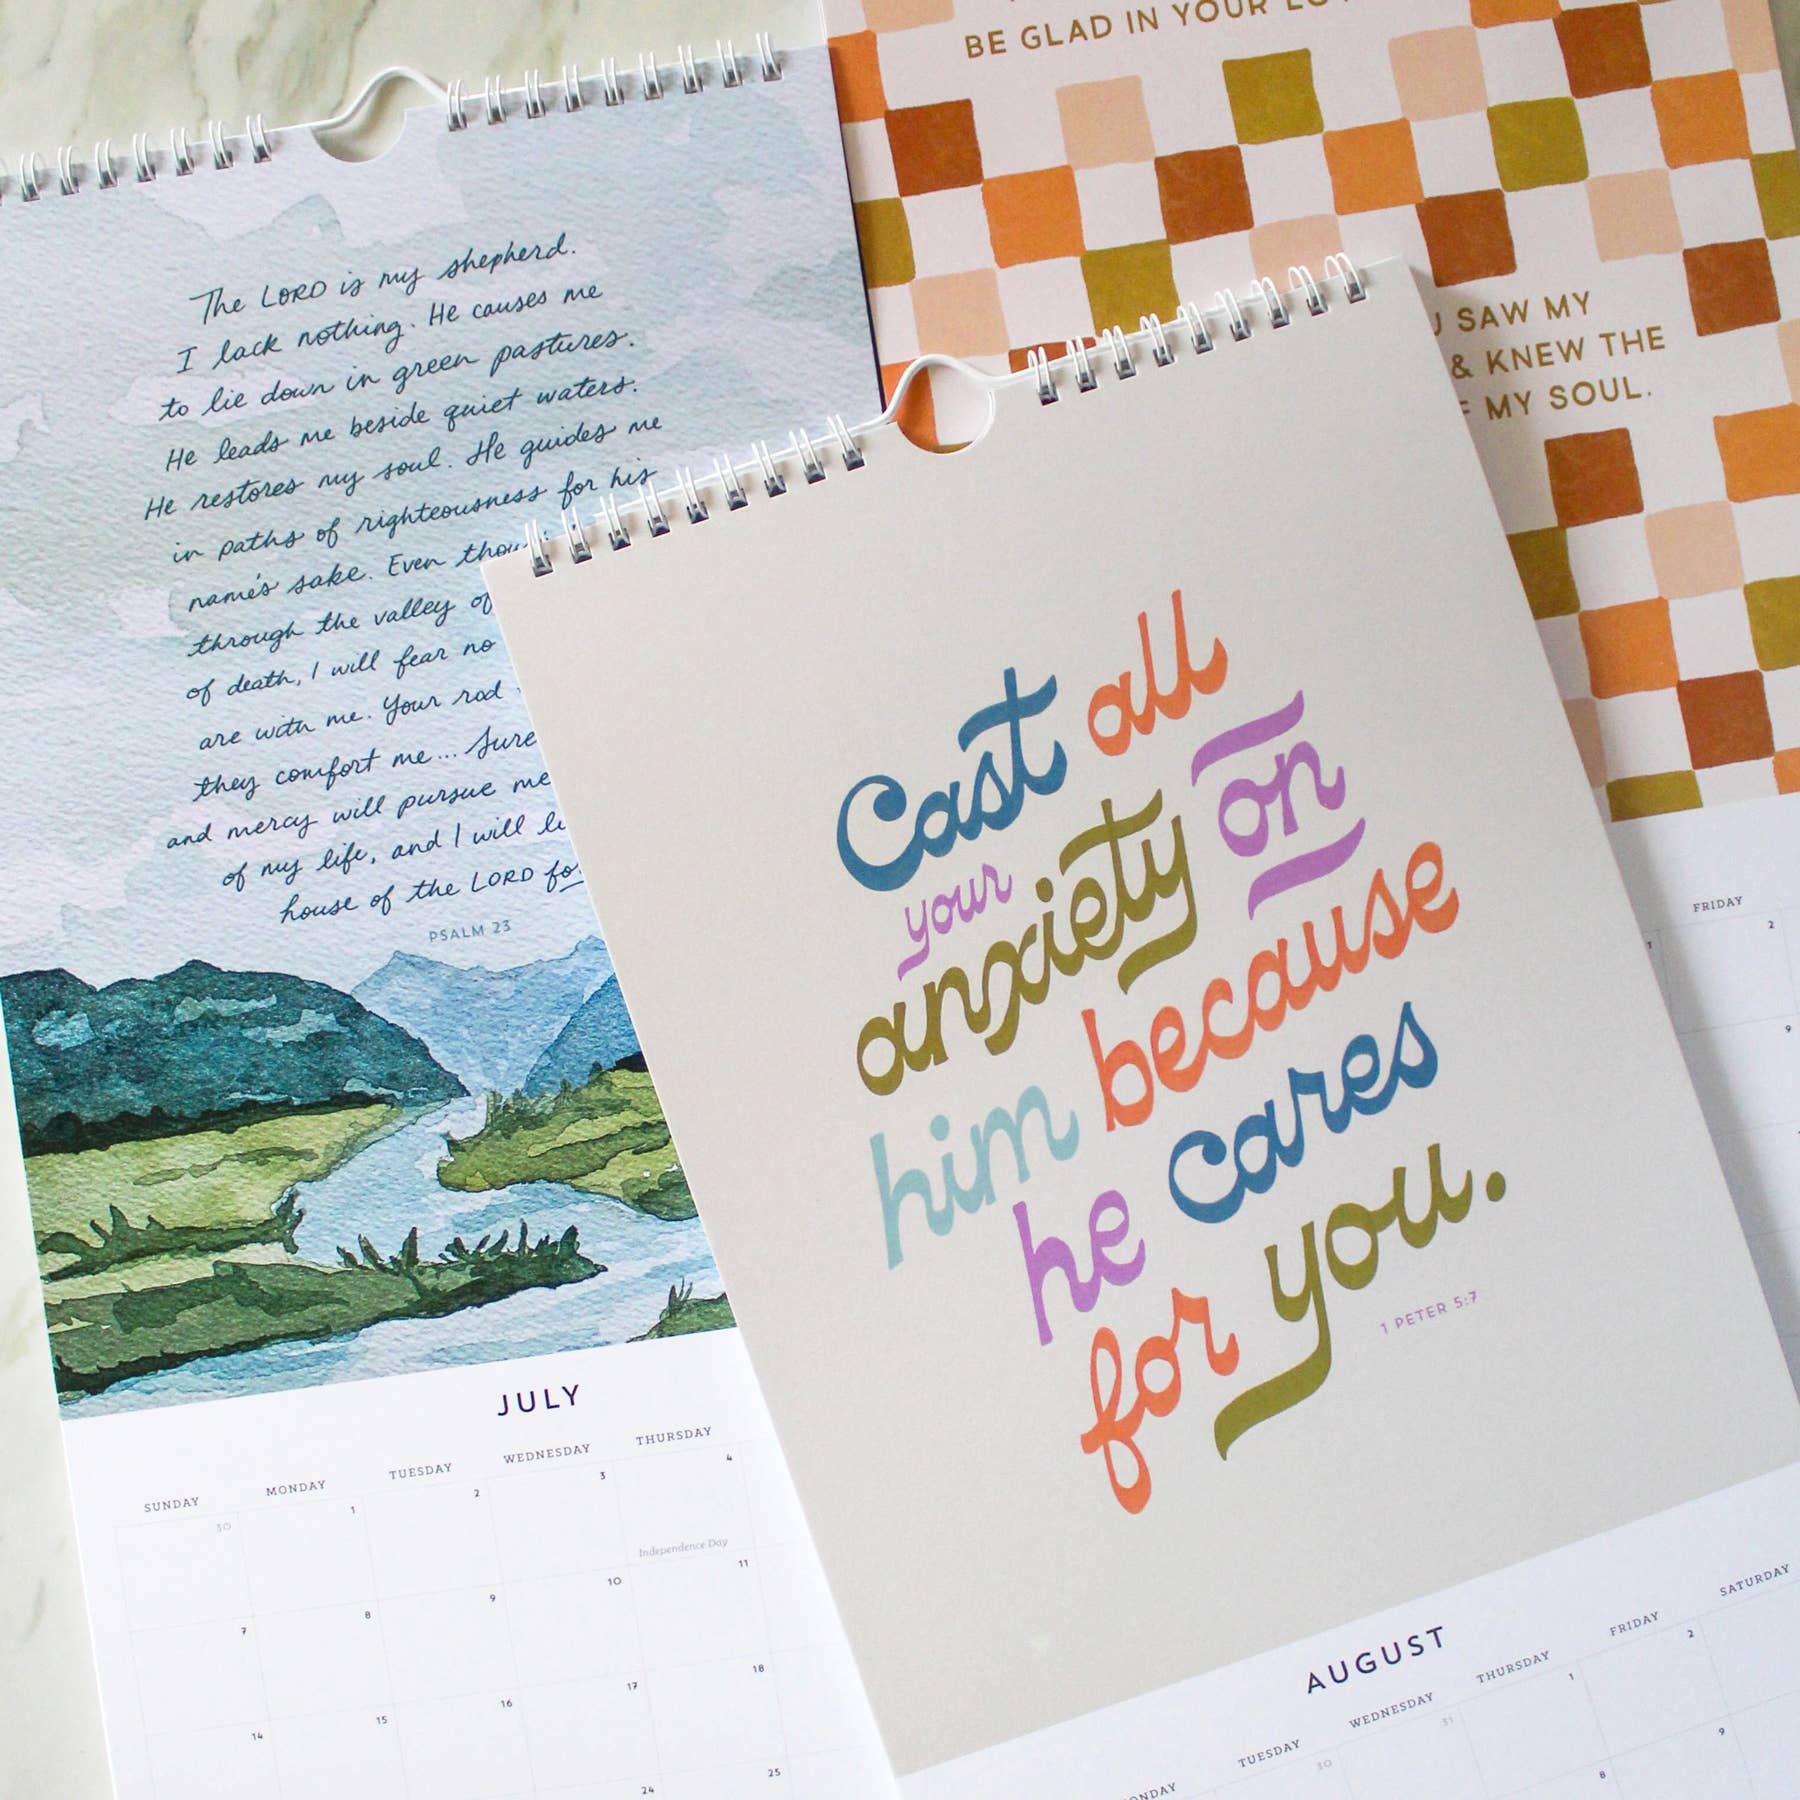 The LORD is my shepherd.
I lack nothing. He causes me
to lie down in green pastures.
He leads me beside quiet waters.
He restores my soul. He guides me
in paths of righteousness for his
name's sake. Even
through the valley of
of death, I will fear no
are with me. Your rod
they comfort me...
and mercy will pursue me
of my life, and I will
house of the LORD
PSALM 23
JULY
SUNDAY MONDAY TUESDAY WEDNESDAY THURSDAY
30 1 2 3 4
Independence Day
7 8 9 10 11
14 15 16 17 18
24 25
BE GLAD IN YOUR
SAW MY
& KNEW THE
MY SOUL.
FRIDAY
1 2
9
Cast all
your
anxiety on
him because
he cares
for you.
1 PETER 5:7
AUGUST
TUESDAY WEDNESDAY THURSDAY FRIDAY SATURDAY
30 31 1 2
8 9